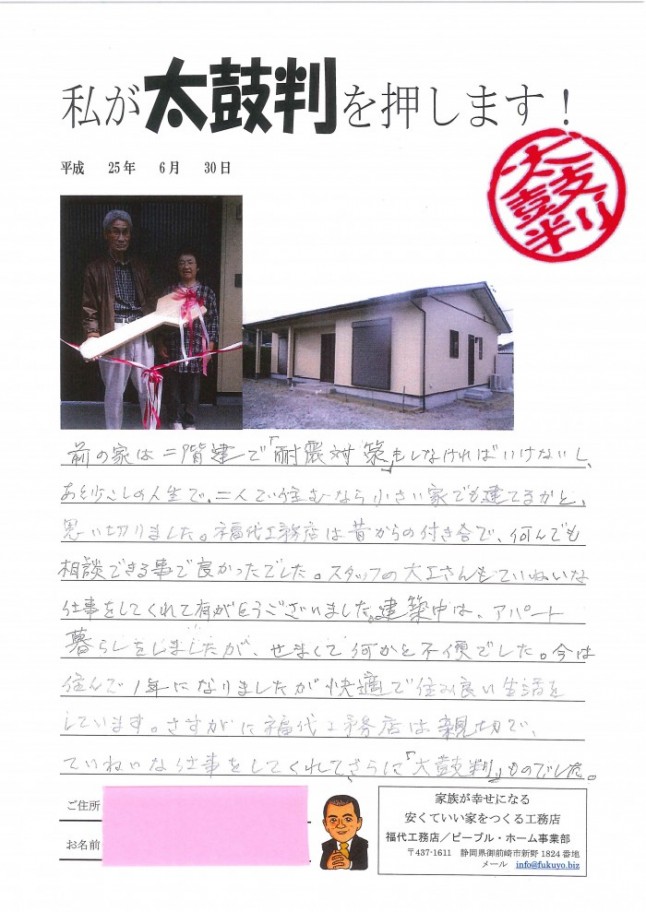 私が太鼓判を押します！
太鼓判
平成　25年　6月　30日
前の家は二階建で「耐震対策」もしなければいけないし、
あと少しの人生で、二人で住むなら小さい家でも建てるかと、
思い切りました。福代工務店は昔からの付き合で、何んでも
相談できる事で良かったでした。スタッフの大工さんもていねいな
仕事をしてくれて有がとうございました。建築中は、アパート
暮らしをしましたが、せまくて何かと不便でした。今は
住んで1年になりましたが快適で住み良い生活を
しています。さすがに福代工務店は親切で、
ていねいな仕事をしてくれて、さらに「太鼓判」ものでした。
ご住所
お名前
家族が幸せになる
安くていい家をつくる工務店
福代工務店／ピープル・ホーム事業部
〒437-1611　静岡県御前崎市新野1824番地
メール　info@fukuyo.biz